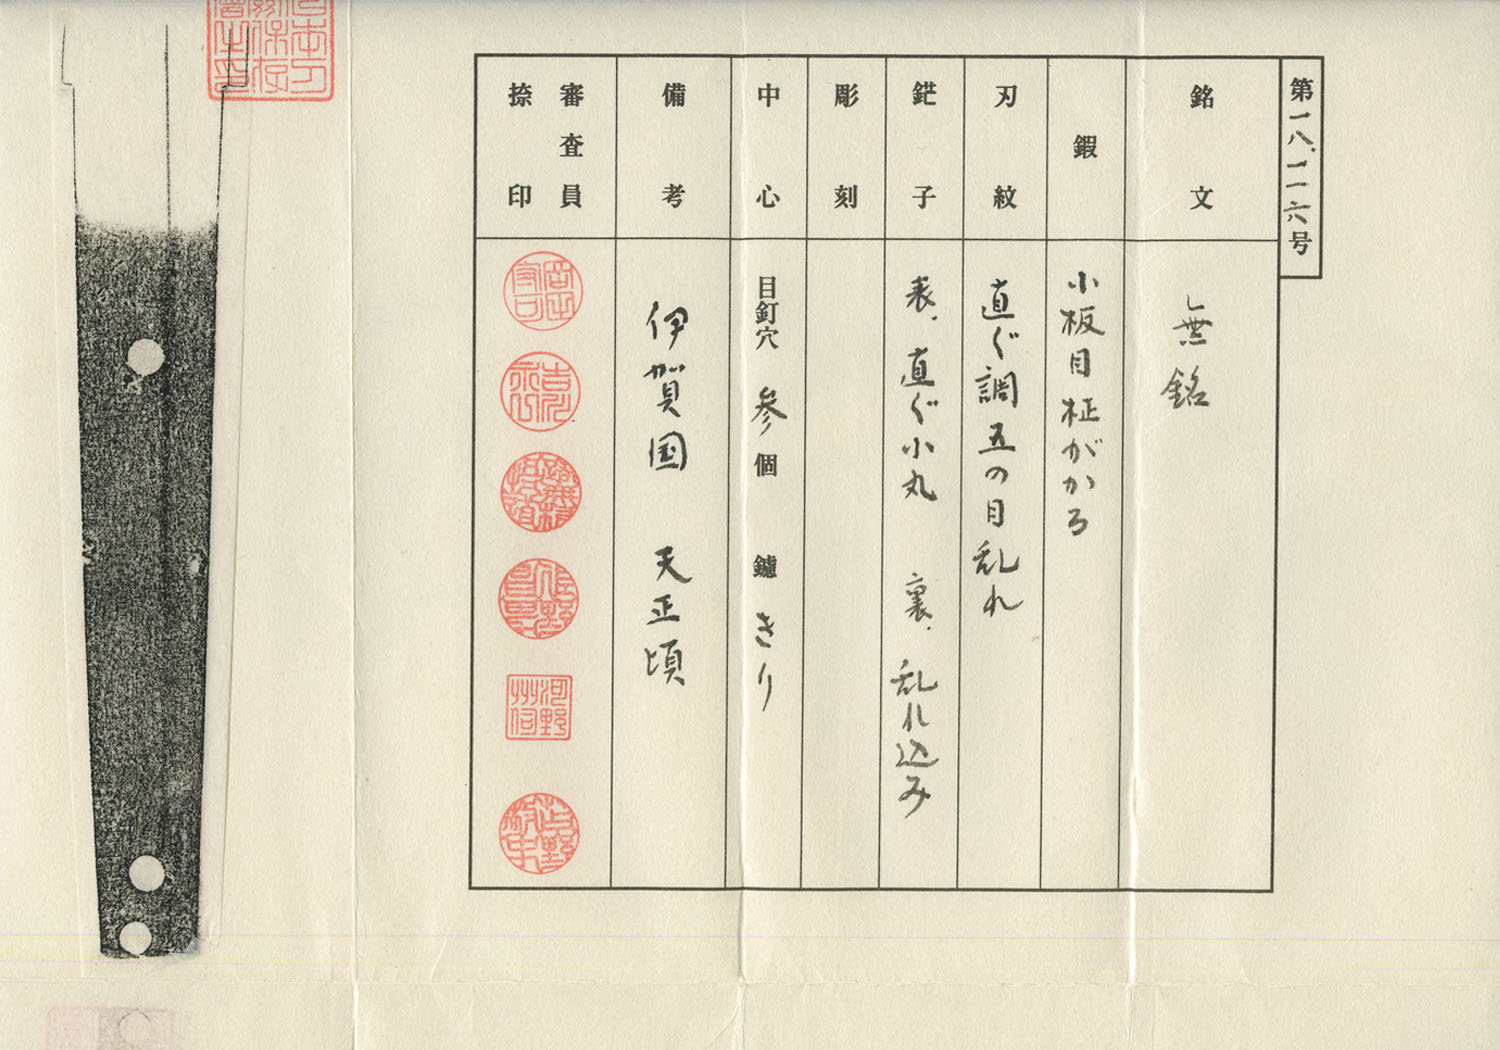 第一八、二一六号
銘文 無銘
鍜 小板目柾がかる
刃紋 直ぐ調五の目乱れ
鋩子 表、直ぐ小丸 裏、乱れ込み
彫刻
中心 目釘穴 参個 鑢 きり
備考 伊賀国 天正頃
審査員
捺印